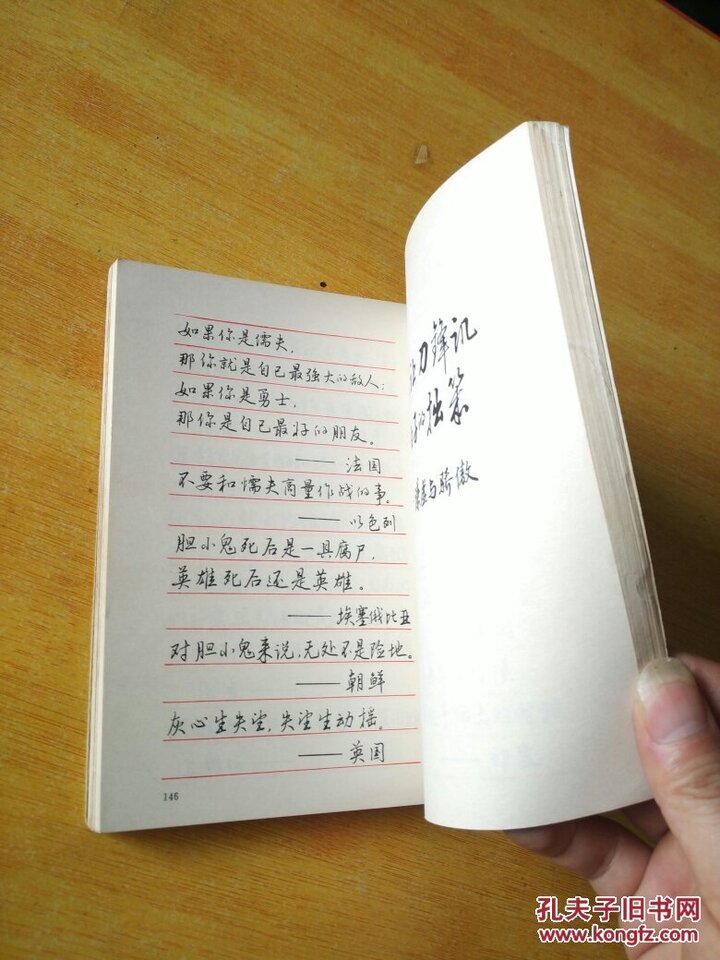 如果你是懦夫,
那你就是自己最强大的敌人;
如果你是勇士,
那你是自己最好的朋友。
——法国
不要和懦夫商量作战的事。
——以色列
胆小鬼死后是一具腐尸,
英雄死后还是英雄。
——埃塞俄比亚
对胆小鬼来说,无处不是险地。
——朝鲜
灰心生失望,失望生动摇。
——英国
146
刀锋讥
的拙笨
与骄傲
孔夫子旧书网
www.kongfz.com